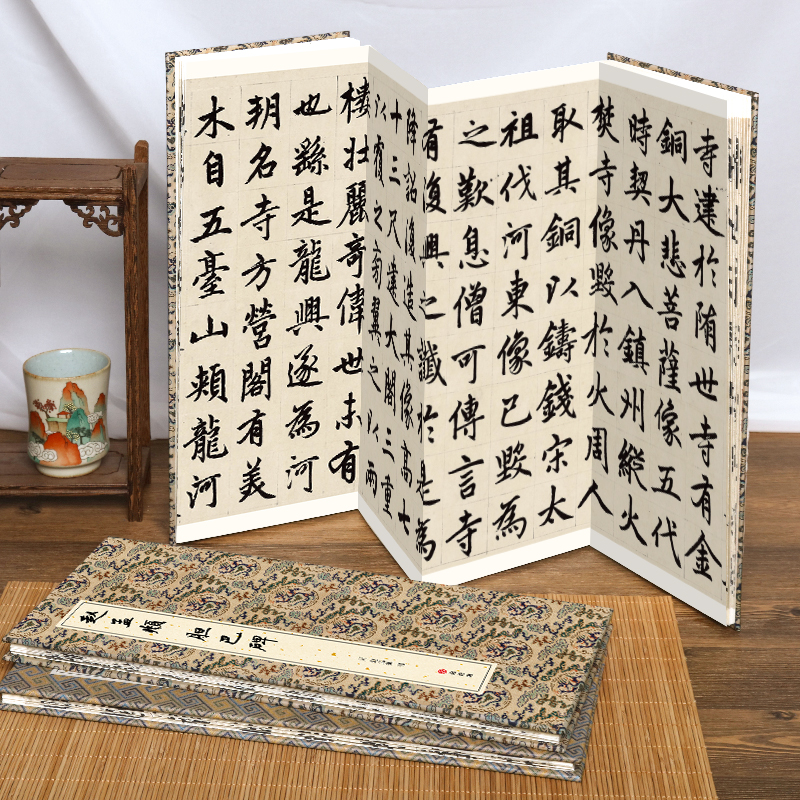 寺建於隋世寺有金
銅大悲菩薩像五代
時契丹入鎮州縱火
焚寺像毀於火周人
取其銅以鑄錢宋太
祖伐河東像已毀為
之歎息僧可傳言寺
有復興之讖於是為
降詔復造其像高七
十三尺建大閣三重
以覆之旁翼之以兩
樓壯麗奇偉世未有
也繇是龍興遂為河
朔名寺方營閣有美
木自五臺山頰龍河
赵孟頫 胆巴碑